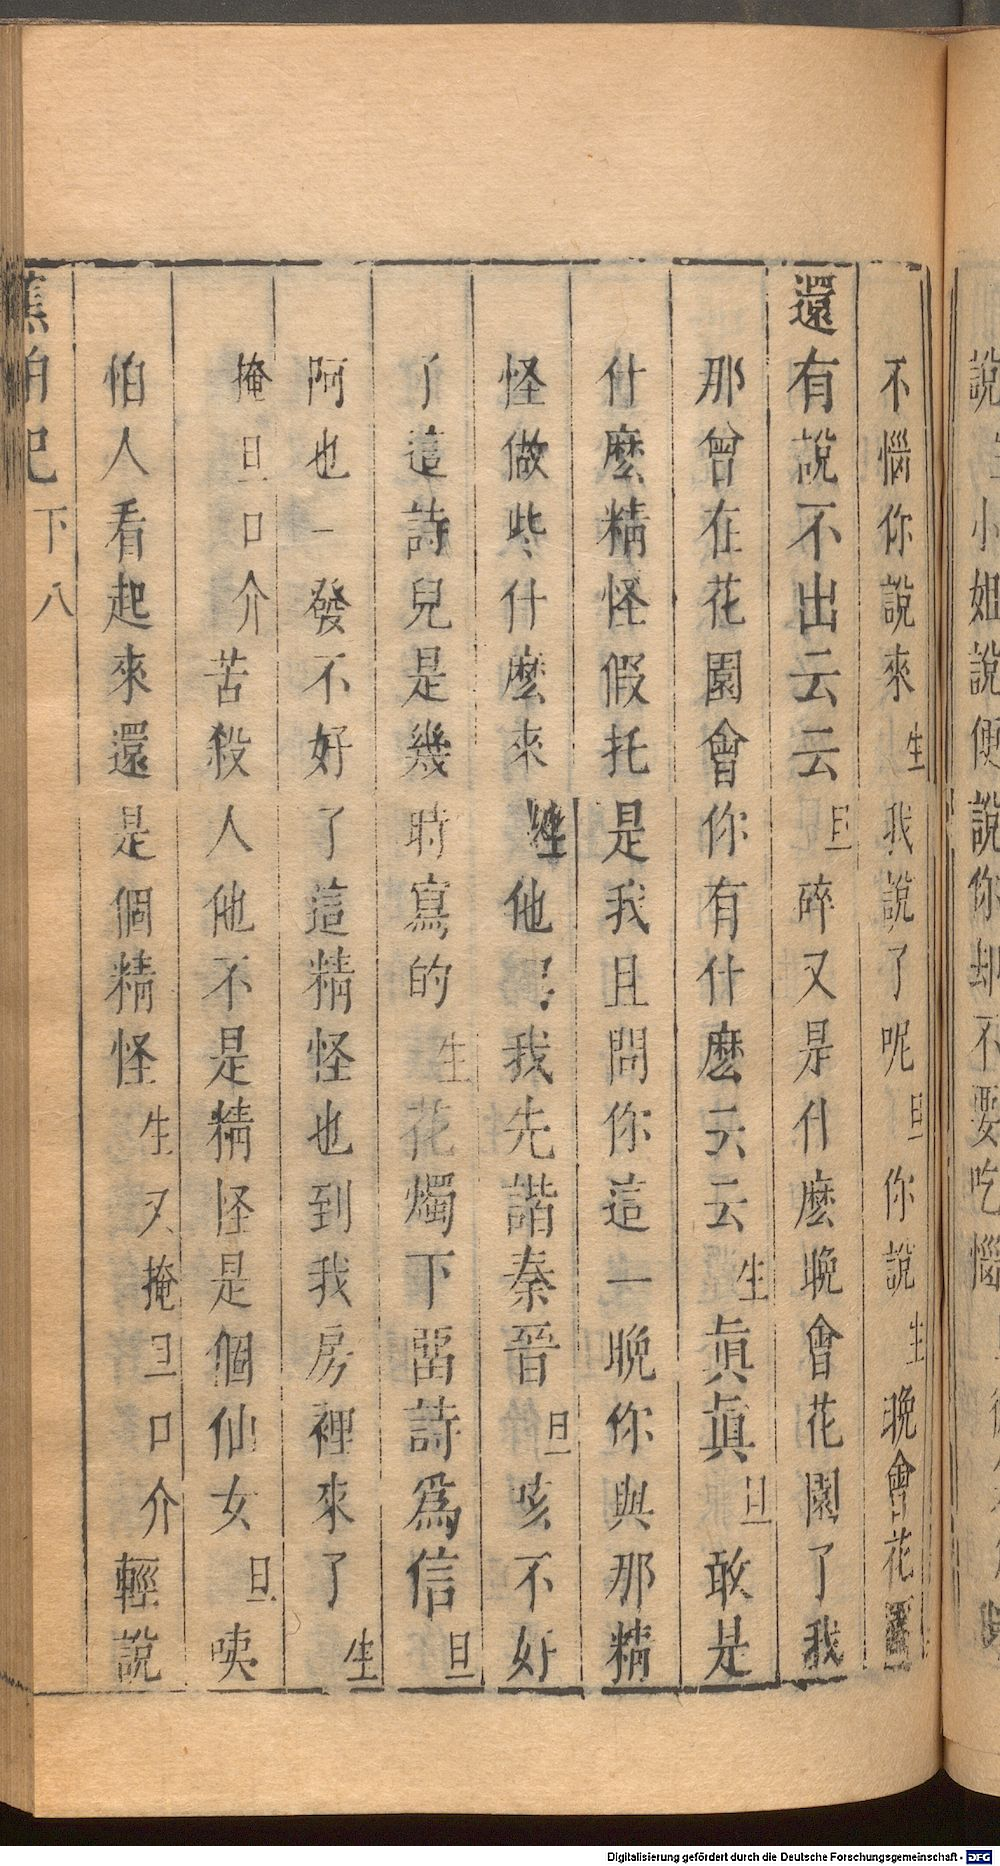 說小姐說便說你却不要吃惱
不惱你說來生我說了呢旦你說生晚會花園
還有說不出云云旦碎又是什麼晚會花園了我
那曾在花園會你有什麼云云生眞眞旦敢是
什麼精怪假托是我且問你這一晚你與那精
怪做些什麼來生他與我先諧秦晉旦咳不好
了這詩兒是幾時寫的生花燭下畱詩爲信旦
阿也一發不好了這精怪也到我房裡來了生
掩旦口介苦殺人他不是精怪是個仙女旦咦
怕人看起來還是個精怪生又掩旦口介輕說
蕉帕記 下 八
Digitalisierung gefördert durch die Deutsche Forschungsgemeinschaft - DFG